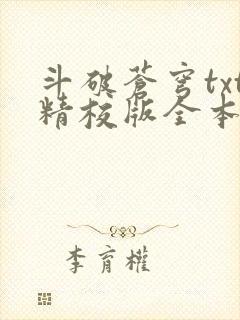 斗破蒼穹txt
精校版全本
李育權